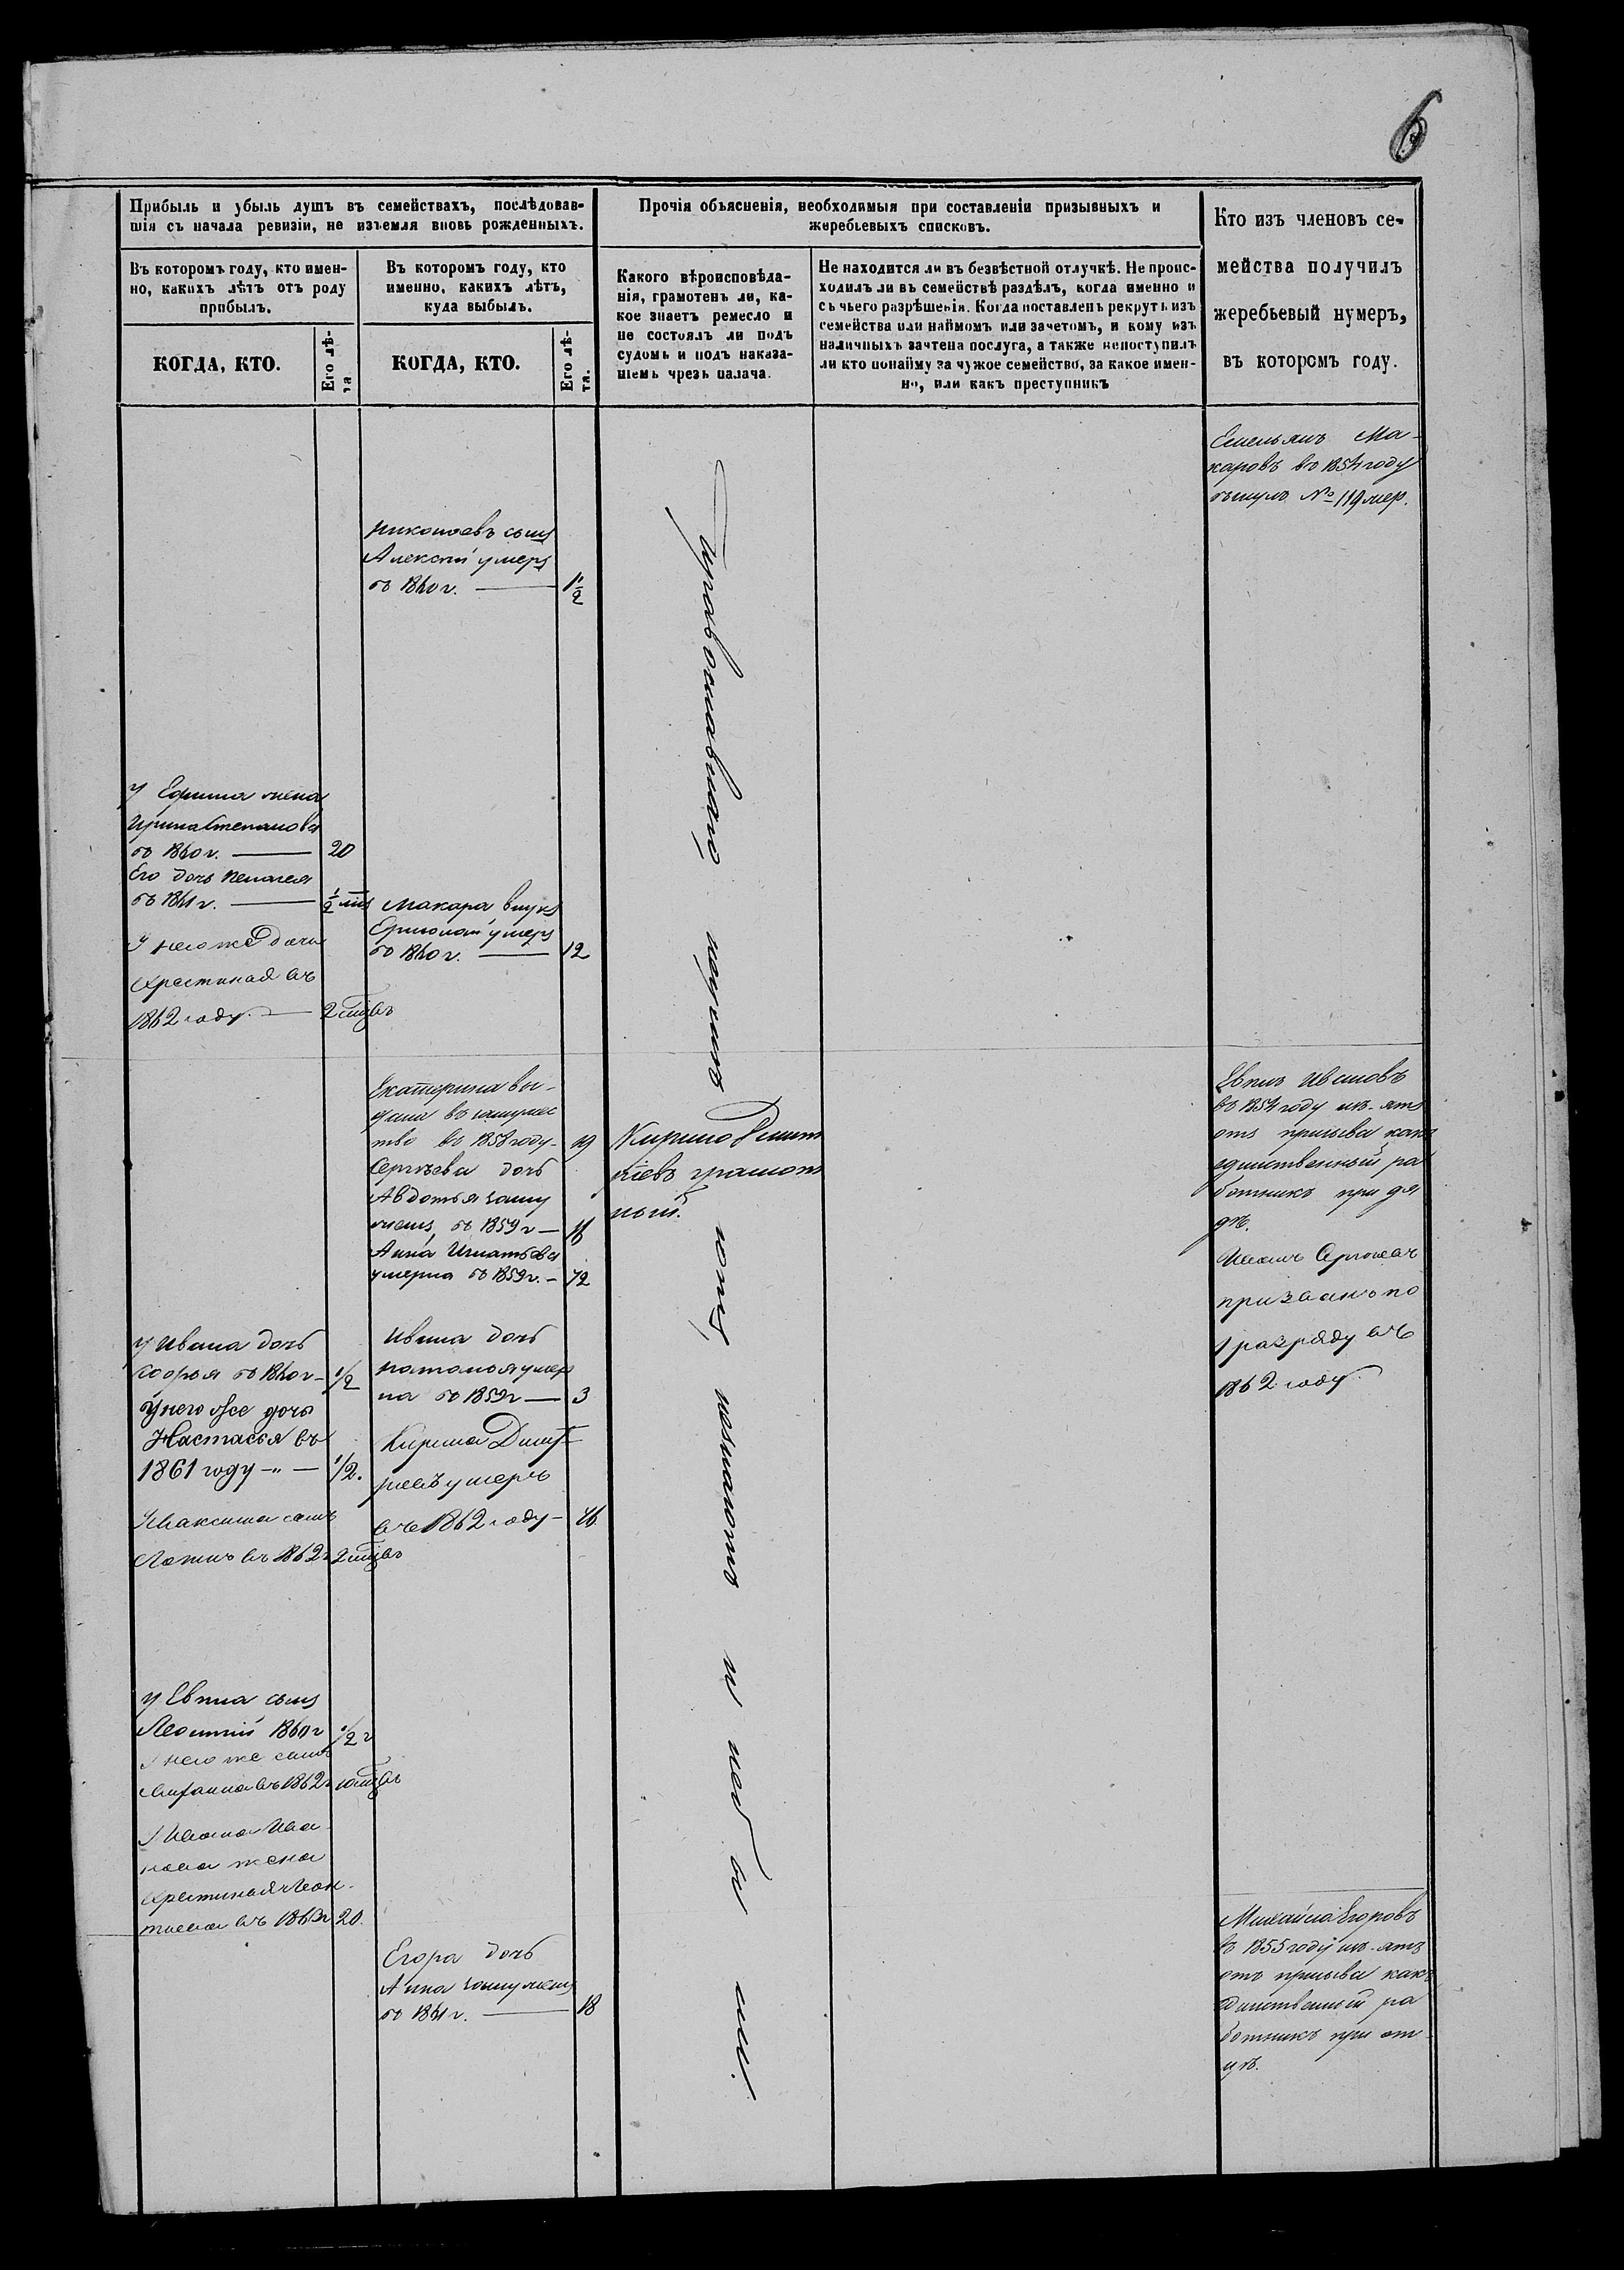 6
Прибыль и убыль душъ въ семействахъ, послѣдовав-
шія съ начала ревизіи, не изъемля вновь рожденныхъ.
Въ которомъ году, кто имен-
но, какихъ лѣтъ отъ роду
прибылъ.
КОГДА, КТО.
Его лѣ-
та
Въ которомъ году, кто
именно, какихъ лѣтъ,
куда выбылъ.
КОГДА, КТО.
Его лѣ-
та.
Прочія объясненія, необходимыя при составленіи призывныхъ и
жеребьевыхъ списковъ.
Какого вѣроисповѣда-
нія, грамотенъ ли, ка-
кое знаетъ ремесло и
не состоялъ ли подъ
судомъ и подъ наказа-
ніемъ чрезъ палача.
Не находится ли въ безвѣстной отлучкѣ. Не проис-
ходилъ ли въ семействѣ раздѣлъ, когда именно и
съ чьего разрѣшенія. Когда поставленъ рекрутъ изъ
семейства или наймомъ или зачетомъ, и кому изъ
наличныхъ зачтена послуга, а также непоступилъ
ли кто понайму за чужое семейство, за какое имен-
но, или какъ преступникъ
Кто изъ членовъ се-
мейства получилъ
жеребьевый нумеръ,
въ которомъ году.
у Ефима жена
Ирина Степанова
въ 1860 г. — 20
Его дочь Пелагея
въ 1861 г. — 1/2
У него же дочь
Хрестинья въ
1862 году — 2
у Ивана дочь
въ 1860 г — 1/2
У него же дочь
Настасья въ
1861 году — 1/2.
У Максима сынъ
въ 1862 г 2
у Евпла сынъ
Леонтій 1860 г 1/2 г
У него же сынъ
въ 1862 г 10
У Ивана Ива-
нова жена
Хрестинья Леон-
тиева въ 1863 г 20.
Николаевъ сынъ
Алексѣй умеръ
въ 1860 г. — 1 1/2
Макара внукъ
Ермолай умеръ
въ 1860 г. — 12
Екатерина вы-
дана въ замужес
тво въ 1858 году — 19
Сергѣева дочь
Авдотья заму
жемъ, въ 1859 г —
Анна Игнатьева
умерла въ 1859 г. — 72
Ивана дочь
Наталья умер
ла въ 1859 г — 3
Кирила Дмит-
ріевъ умеръ
въ 1862 году — 46
Егора дочь
Анна замужемъ
въ 1861 г. — 18
неграмотны и не
Кирило Дмит
ріевъ грамот
ный.
Емельянъ Ма-
каровъ въ 1854 году
вынулъ № 119 жер.
Евпл Ивановъ
въ 1854 году изъ-ятъ
отъ призыва какъ
единственный ра
ботникъ при дя
дѣ.
Иванъ Сергѣевъ
призванъ по
1 разряду въ
1862 году
Михайла Егоровъ
въ 1855 году изъ-ятъ
отъ призыва какъ
единственный ра
ботникъ при от-
цѣ.